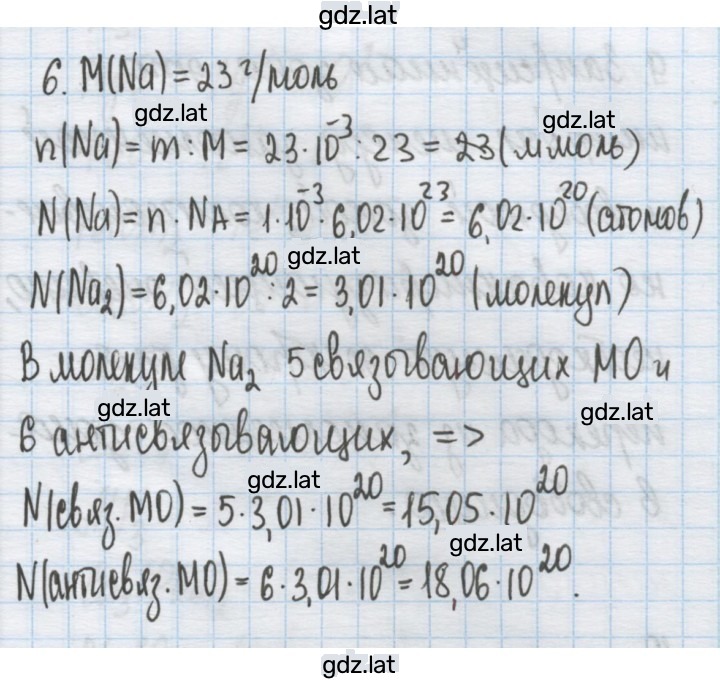 gdz.lat
6. M(Na) = 23 г/моль
gdz.lat gdz.lat
n(Na) = m : M = 23·10⁻³ : 23 = 23 (ммоль)
N(Na) = n · NA = 1·10⁻³ · 6,02·10²³ = 6,02·10²⁰ (атомов)
gdz.lat
N(Na₂) = 6,02·10²⁰ : 2 = 3,01·10²⁰ (молекул)
В молекуле Na₂ 5 связывающих МО и
gdz.lat gdz.lat
6 антисвязывающих, =>
gdz.lat
N(связ. МО) = 5·3,01·10²⁰ = 15,05·10²⁰
gdz.lat
N(антисвяз. МО) = 6·3,01·10²⁰ = 18,06·10²⁰.
gdz.lat